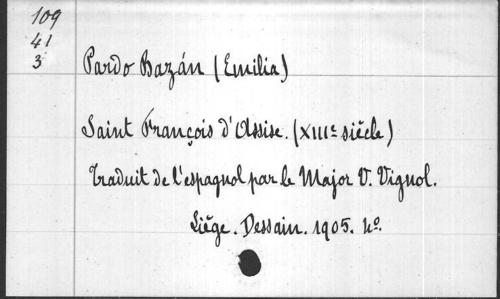 109
41
3
Pardo Bazán (Emilia)
Saint François d'Assise. (XIIIe siècle)
Traduit de l'espagnol par le Major V. Vignol.
Liège. Dessain. 1905. 4o.